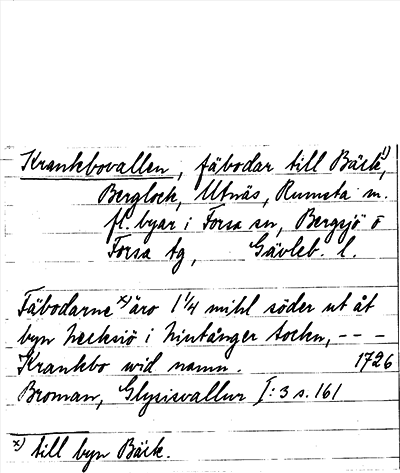 Krankbovallen, fäbodar till Bäck,¹⁾
Berglock, Utnäs, Rumsta m.
fl. byar i Forsa sn, Bergsjö o
Forsa tg, Gävleb. l.
Fäbodarne ˣ⁾ äro 1 1/4 mihl söder ut åt
byn Necksiö i Niutånger sockn, - - -
Krankbo wid namn. 1726
Broman, Glysisvallur I: 3 s. 161
x) till byn Bäck.